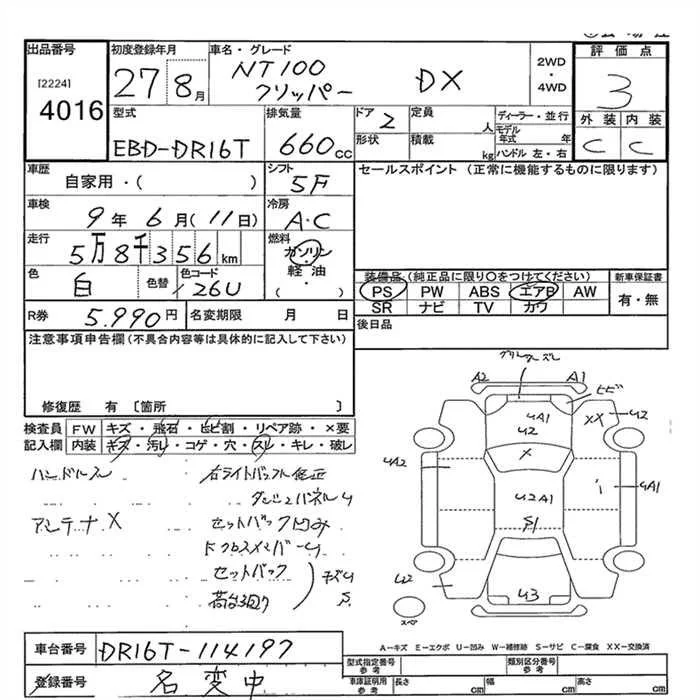 出品番号 初度登録年月 車名・グレード 2WD・4WD 評価点
[2224] 4016 27 8月 NT100 クリッパー DX 3
型式 排気量 ドア 2 定員 人 ディーラー・並行 外装 内装
EBD-DR16T 660cc 形状 積載 kg モデル年式 年 ハンドル 左・右 C C
車歴 自家用・( ) シフト 5F セールスポイント (正常に機能するものに限ります)
車検 9年6月(11日) 冷房 A・C
走行 5万8千356km 燃料 ガソリン・軽油 ( ・ )
色 白 色替 色コード 26U 装備品(純正品に限り○をつけてください) 新車保証書
PS PW ABS エアB AW 有・無
SR ナビ TV カワ
R券 5.990円 名変期限 月 日 後日品
注意事項申告欄(不具合内容等は具体的に記入して下さい)
修復歴 有 〔箇所 〕
検査員 FW キズ・飛石・ヒビ割・リペア跡・×要
記入欄 内装 キズ・汚レ・コゲ・穴・スレ・キレ・破レ
ハンドルスレ
アンテナ X
セットバック凹み
セットバック
A2 A1 ヒビ
UA1 U2 XX U2
UA2 X U2A1 UA1
S1 U2 U3
スペア
A-キズ E-エクボ U-凹み W-補修跡 S-サビ C-腐食 XX-交換済
車台番号 DR16T-114197 型式指定番号 参考 類別区分番号 参考
登録番号 名変中 車庫証明用 参考 長さ cm 幅 cm 高さ cm